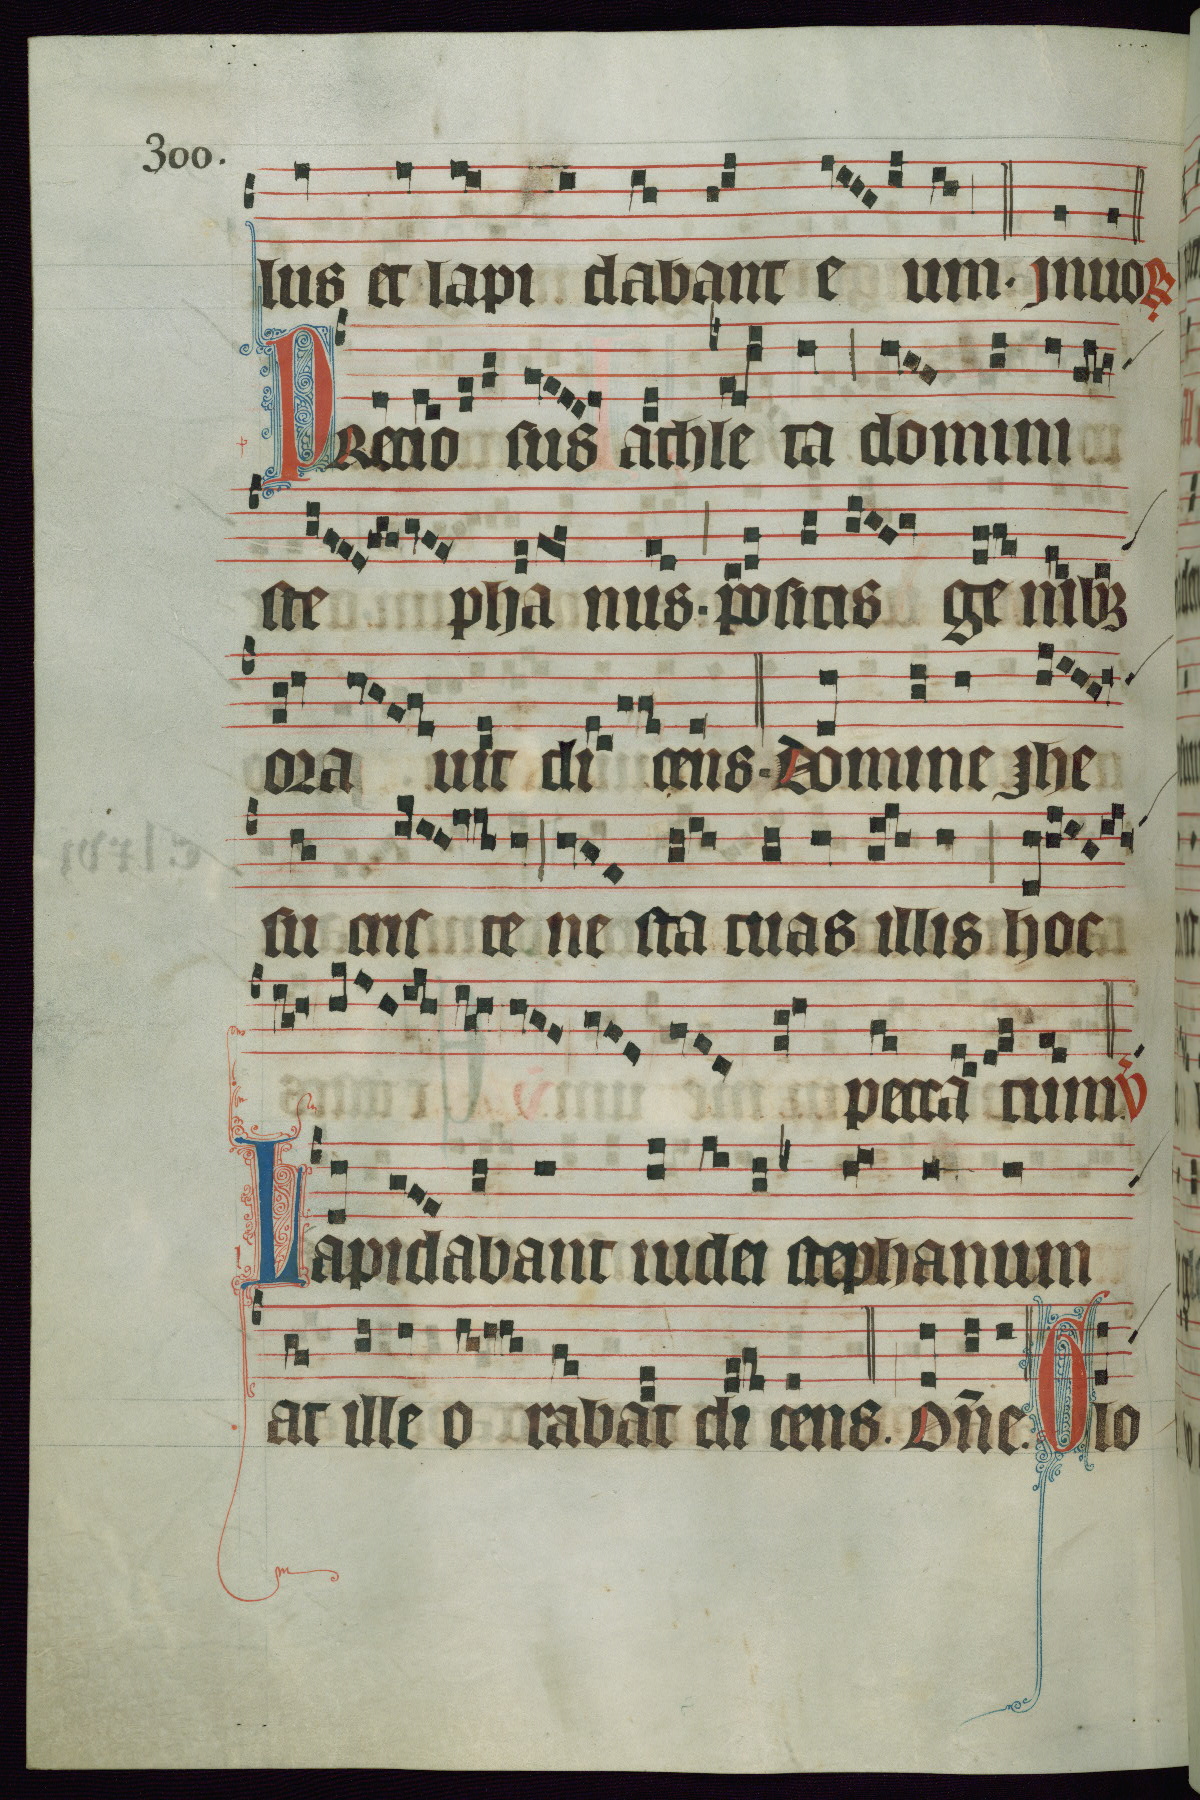 300.
lus et lapi dabant e um. jnuo R
PRecio sus athle ta domini
ste pha nus. positis ge nibꝫ
ora uit di cens. Domine jhe
su cris te ne sta tuas illis hoc
pecca tum. V
Lapidabant iudei stephanum
at ille o rabat di cens. Dn̄e. O lo